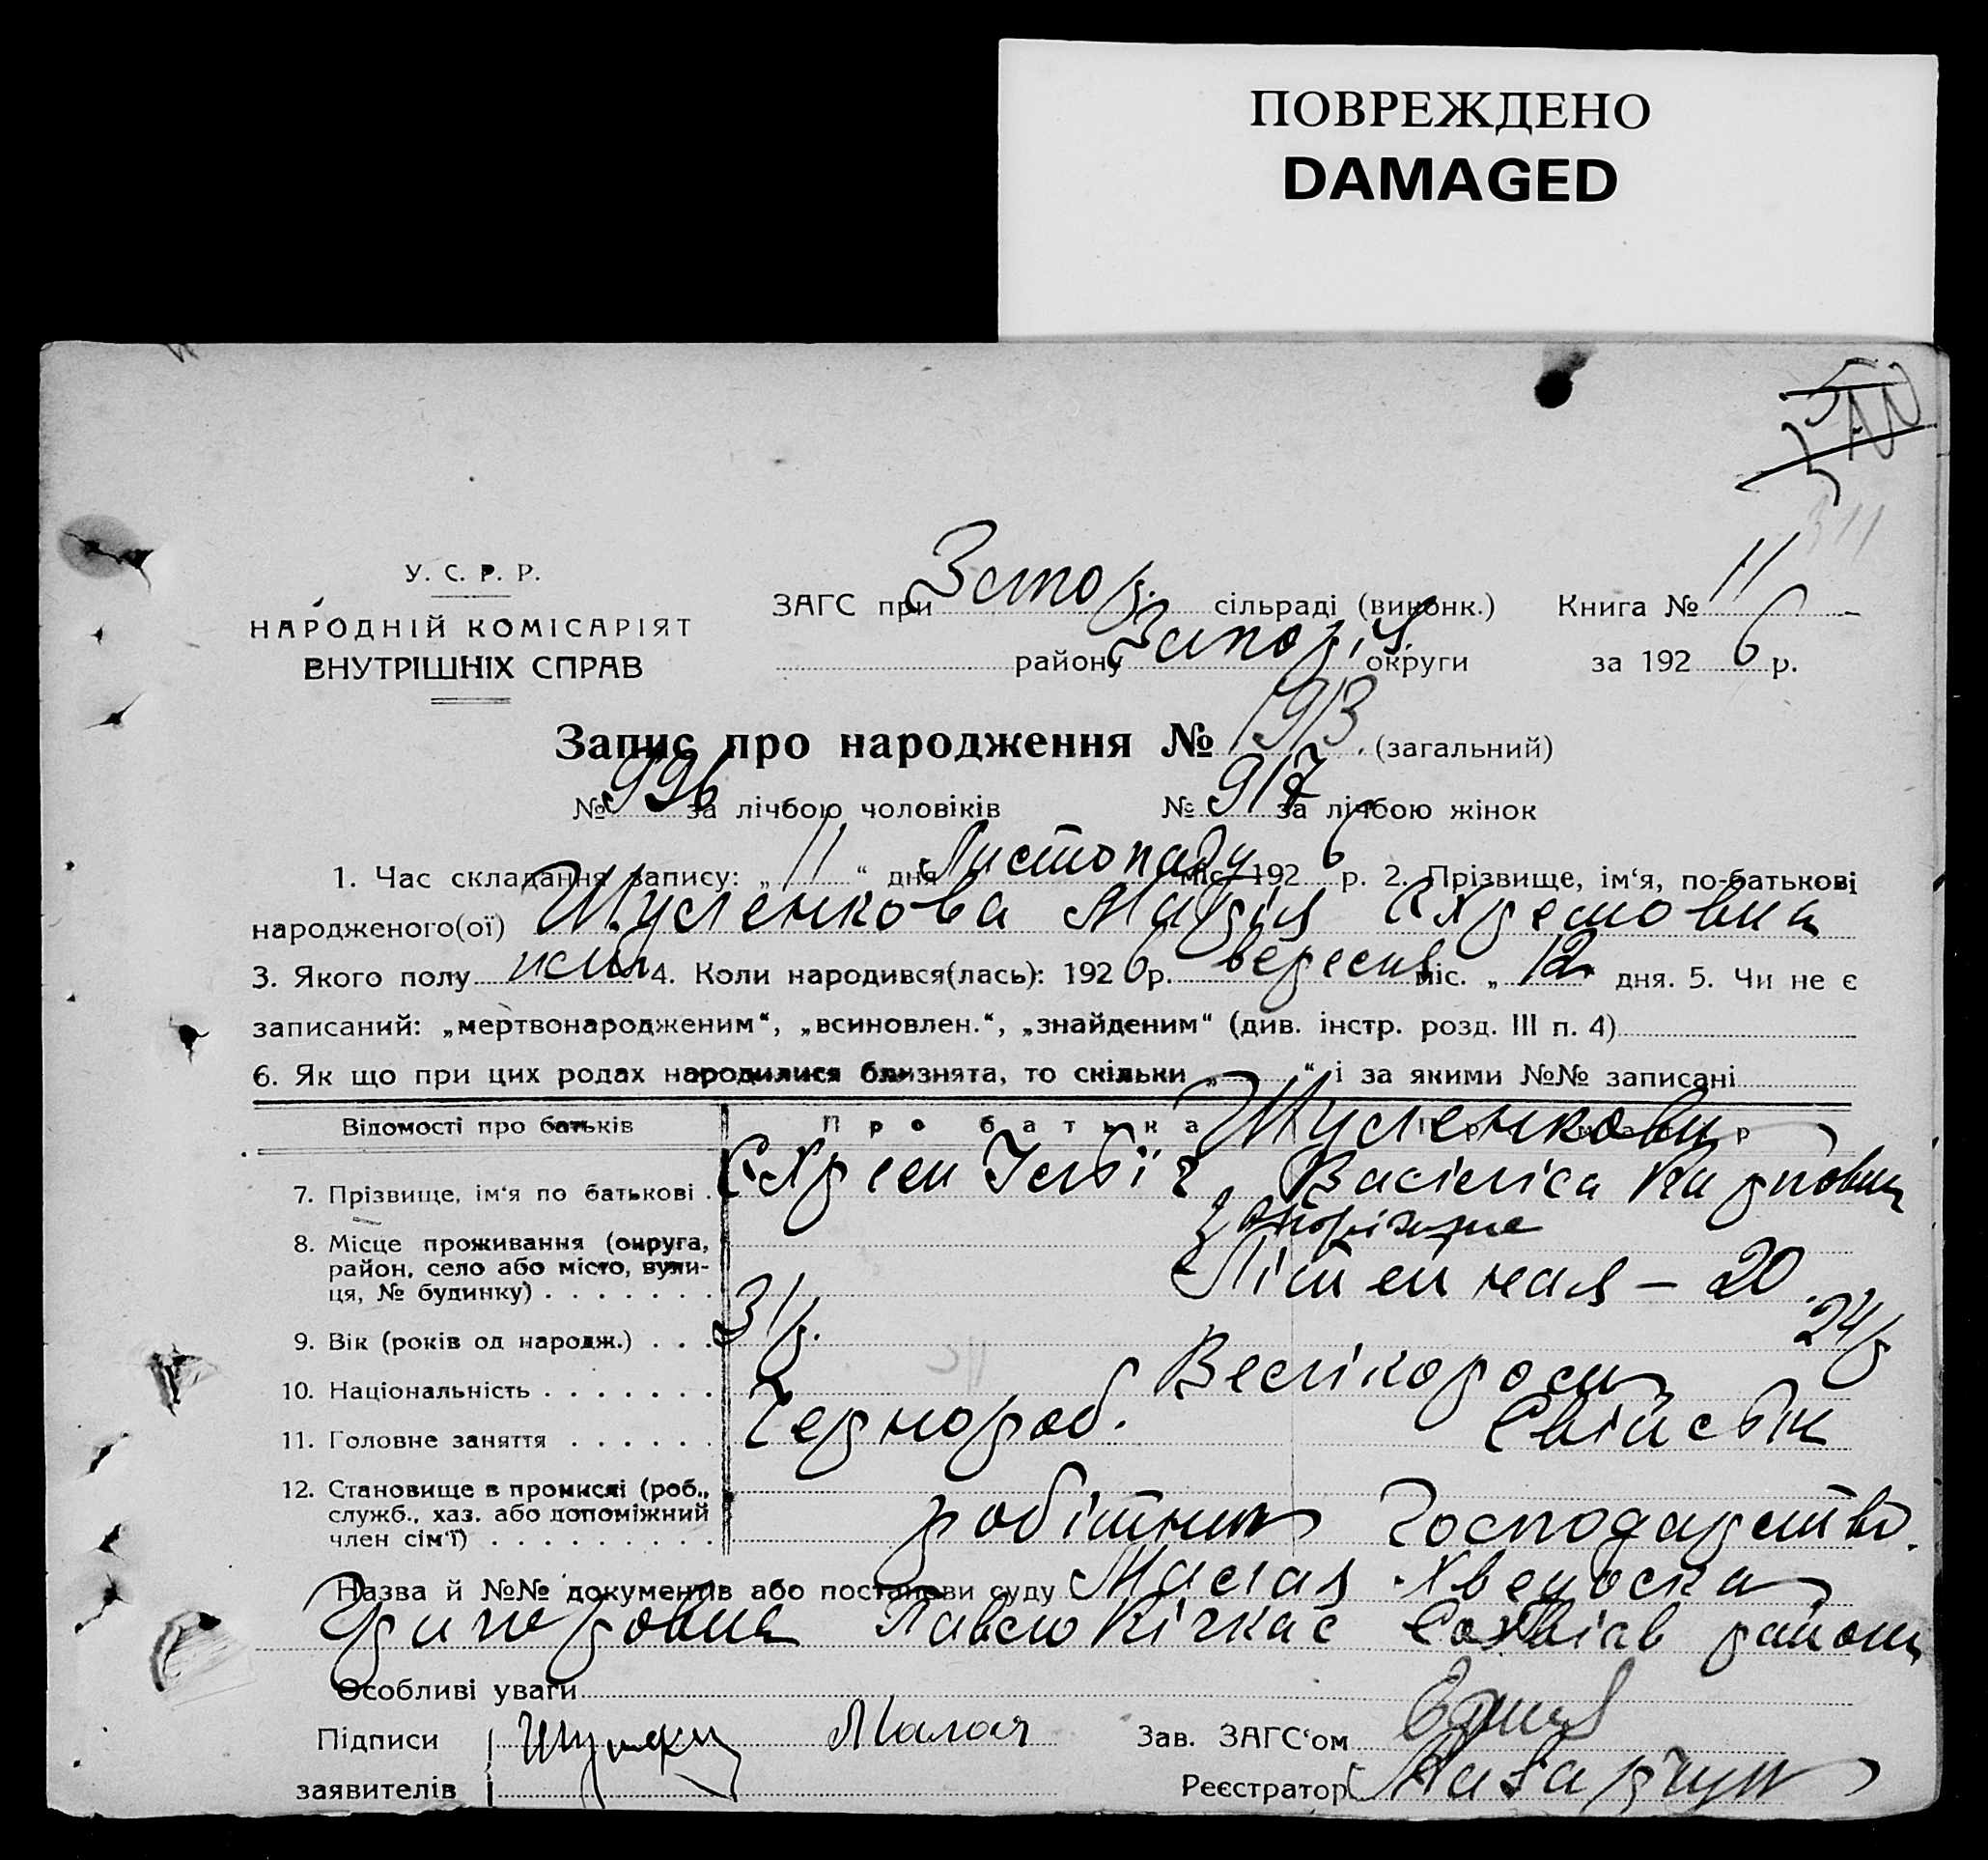 ПОВРЕЖДЕНО
DAMAGED
311
У. С. Р. Р.
НАРОДНІЙ КОМІСАРІЯТ
ВНУТРІШНІХ СПРАВ
ЗАГС при Запор. сільраді (виконк.) Книга № 11
району Запоріз. округи за 1926 р.
Запис про народження № 1913 (загальний)
№ 996 за лічбою чоловіків № 917 за лічбою жінок
1. Час складання запису: „ 11 “ дня Листопаду міс. 1926 р. 2. Прізвище, ім‘я, по-батькові
народженого(ої) Шуленкова Марія Єхремовна
3. Якого полу 4. Коли народився(лась): 1926 р. вересня міс. „ 12 дня. 5. Чи не є
записаний: „мертвонародженим“, „всиновлен.“, „знайденим“ (див. інстр. розд. III п. 4)
6. Як що при цих родах народилися близнята, то скільки „ “ і за якими №№ записані
Відомості про батьків Про батька Шуленкови
7. Прізвище, ім‘я по батькові Єхрем Василіса Карповна
8. Місце проживання (округа, Запоріжжє
район, село або місто, вули- Літейная – 20
ця, № будинку)
9. Вік (років од народж.) 31 р. 24 р
10. Національність Велікороси
11. Головне заняття Чернороб. Свійськ
12. Становище в промислі (роб.,
служб., хаз. або допоміжний робітник Господарство.
член сім‘ї)
Назва й №№ документів або постанови суду Малая Хведоска
Григоровна Павло Кічкас району
Особливі уваги
Підписи Малая Зав. ЗАГС‘ом
заявителів Реєстратор